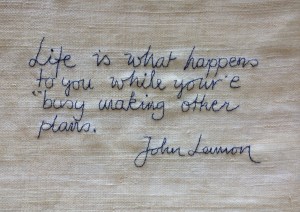 Life is what happens
to you while your'e
"busy making other
plans.
John Lennon